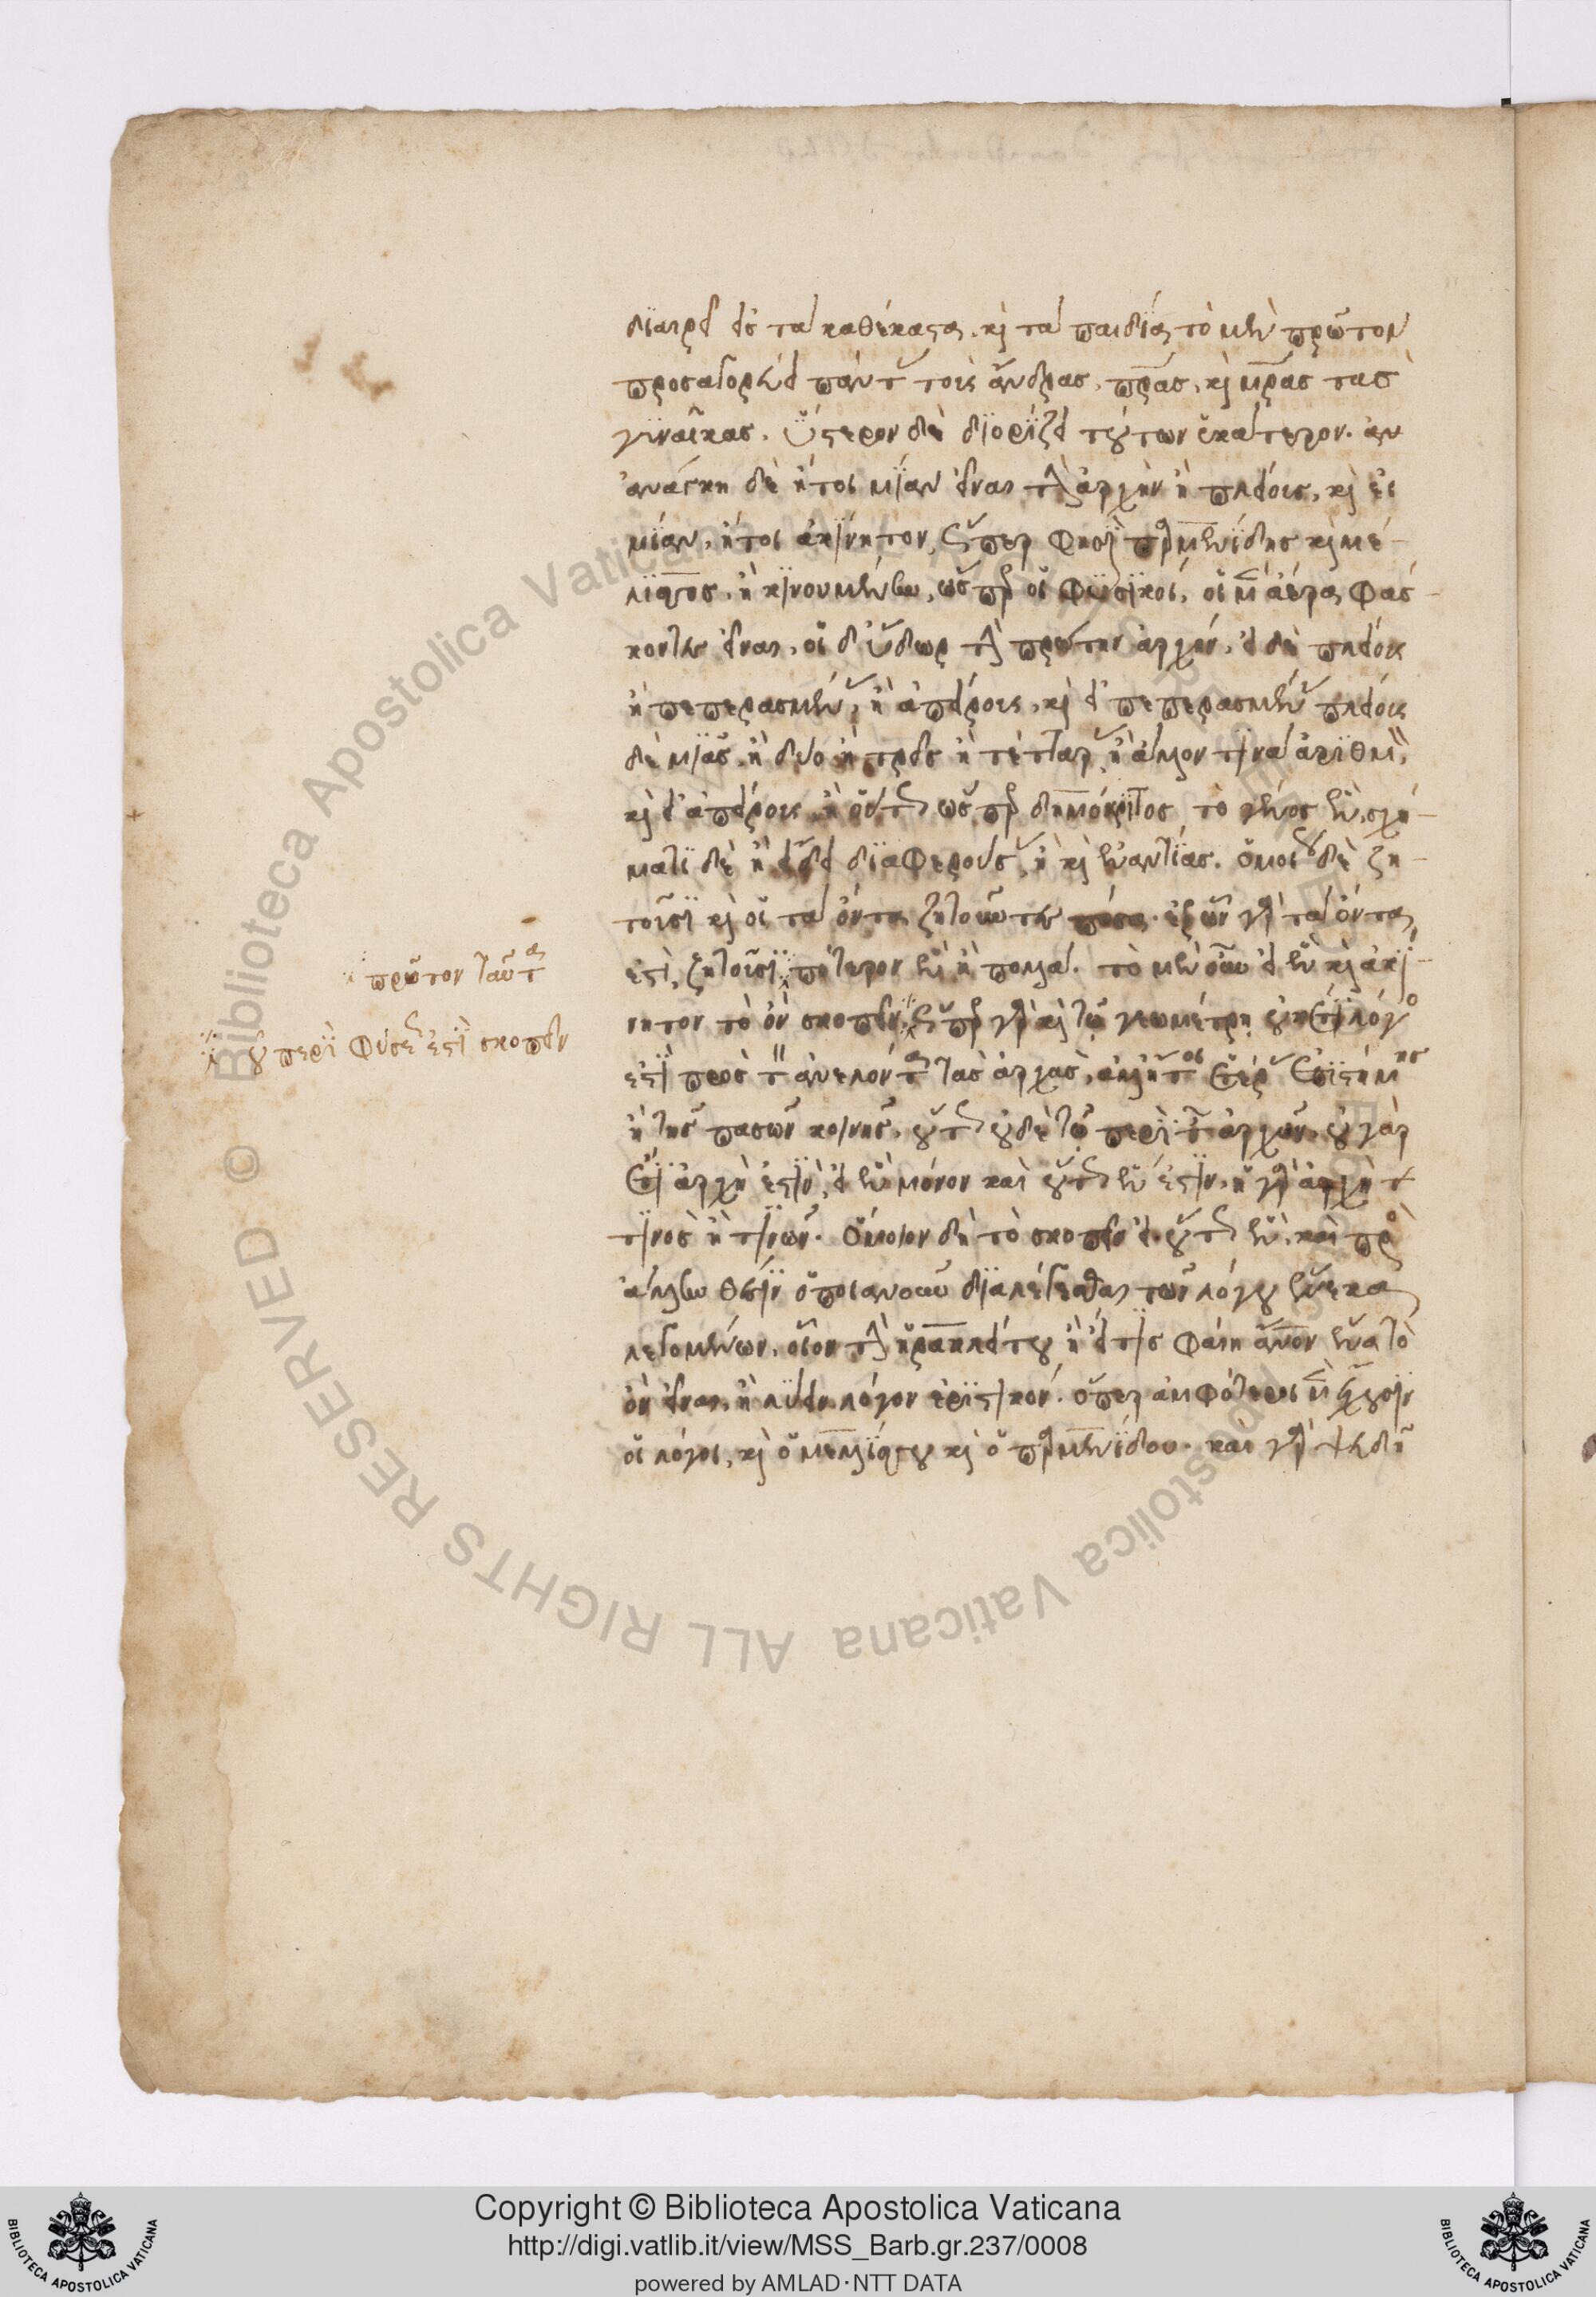 διαιρεῖ εἰς τὰ καθέκαστα. καὶ τὰ παιδία τὸ μὲν πρῶτον
προσαγορεύει πάντας τοὺς ἄνδρας, πρας, καὶ μρας τὰς
γυναῖκας. ὕστερον δὲ διορίζει τούτων ἑκάτερον. ἀν
ἀνάγκη δὲ ἤτοι μίαν εἶναι τὴν ἀρχὴν ἢ πλείους, καὶ εἰ
μίαν, ἤτοι ἀκίνητον, ὥσπερ φησὶ παρμενίδης καὶ μέ-
λισσος, ἢ κινουμένην, ὥσπερ οἱ φυσικοί, οἱ μὲν ἀέρα φάσ-
κοντες εἶναι, οἱ δ' ὕδωρ τὴν πρώτην ἀρχήν, εἰ δὲ πλείους
ἢ πεπερασμένας, ἢ ἀπείρους, καὶ εἰ πεπερασμένας πλείους
δὲ μιᾶς, ἢ δύο ἢ τρεῖς ἢ τέτταρας ἢ ἄλλον τινὰ ἀριθμὸν,
καὶ εἰ ἀπείρους, ἢ οὕτως ὥσπερ δημόκριτος, τὸ γένος ἕν, σχή-
ματι δὲ ἢ εἴδει διαφερούσας, ἢ καὶ ἐναντίας. ὁμοίως δὲ ζη-
τοῦσι καὶ οἱ τὰ ὄντα ζητοῦντες πόσα. ἐξ ὧν γὰρ τὰ ὄντα
ἐστὶ, ζητοῦσι πότερον ἓν ἢ πολλά. τὸ μὲν οὖν εἰ ἓν καὶ ἀκί-
νητον τὸ ὂν σκοπεῖν, ὥσπερ γὰρ καὶ τῷ γεωμέτρῃ οὐκέτι λόγος
ἐστὶ πρὸς τὸν ἀνελόντα τὰς ἀρχὰς, ἀλλ' ἤτοι ἑτέρας ἐπιστήμης
ἢ τῆς πασῶν κοινῆς, οὕτως οὐδὲ τῷ περὶ τῶν ἀρχῶν, οὐ γὰρ
ἔτι ἀρχὴ ἐστὶν, εἰ ἓν μόνον καὶ οὕτως ἕν ἐστιν, ἡ γὰρ ἀρχὴ
τινὸς ἢ τινῶν. ὅμοιον δὴ τὸ σκοπεῖν εἰ οὕτως ἓν, καὶ πρὸς
ἄλλην θέσιν ὁποιανοῦν διαλέγεσθαι τῶν λόγου ἕνεκα
λεγομένων, οἷον τὴν ἡρακλείτου ἢ εἴ τις φαίη ἄνον ἕνα τὸ
ὂν εἶναι, ἢ λύειν λόγον ἐριστικόν. ὅπερ ἀμφότεροι μὲν ἔχουσιν
οἱ λόγοι, καὶ ὁ μελλίσσου καὶ ὁ παρμενίδου. καὶ γὰρ ψευδῆ
πρῶτον ταῦτα
οὐ περὶ φύσεώς ἐστι σκοπεῖν
Copyright © Biblioteca Apostolica Vaticana
http://digi.vatlib.it/view/MSS_Barb.gr.237/0008
powered by AMLAD·NTT DATA